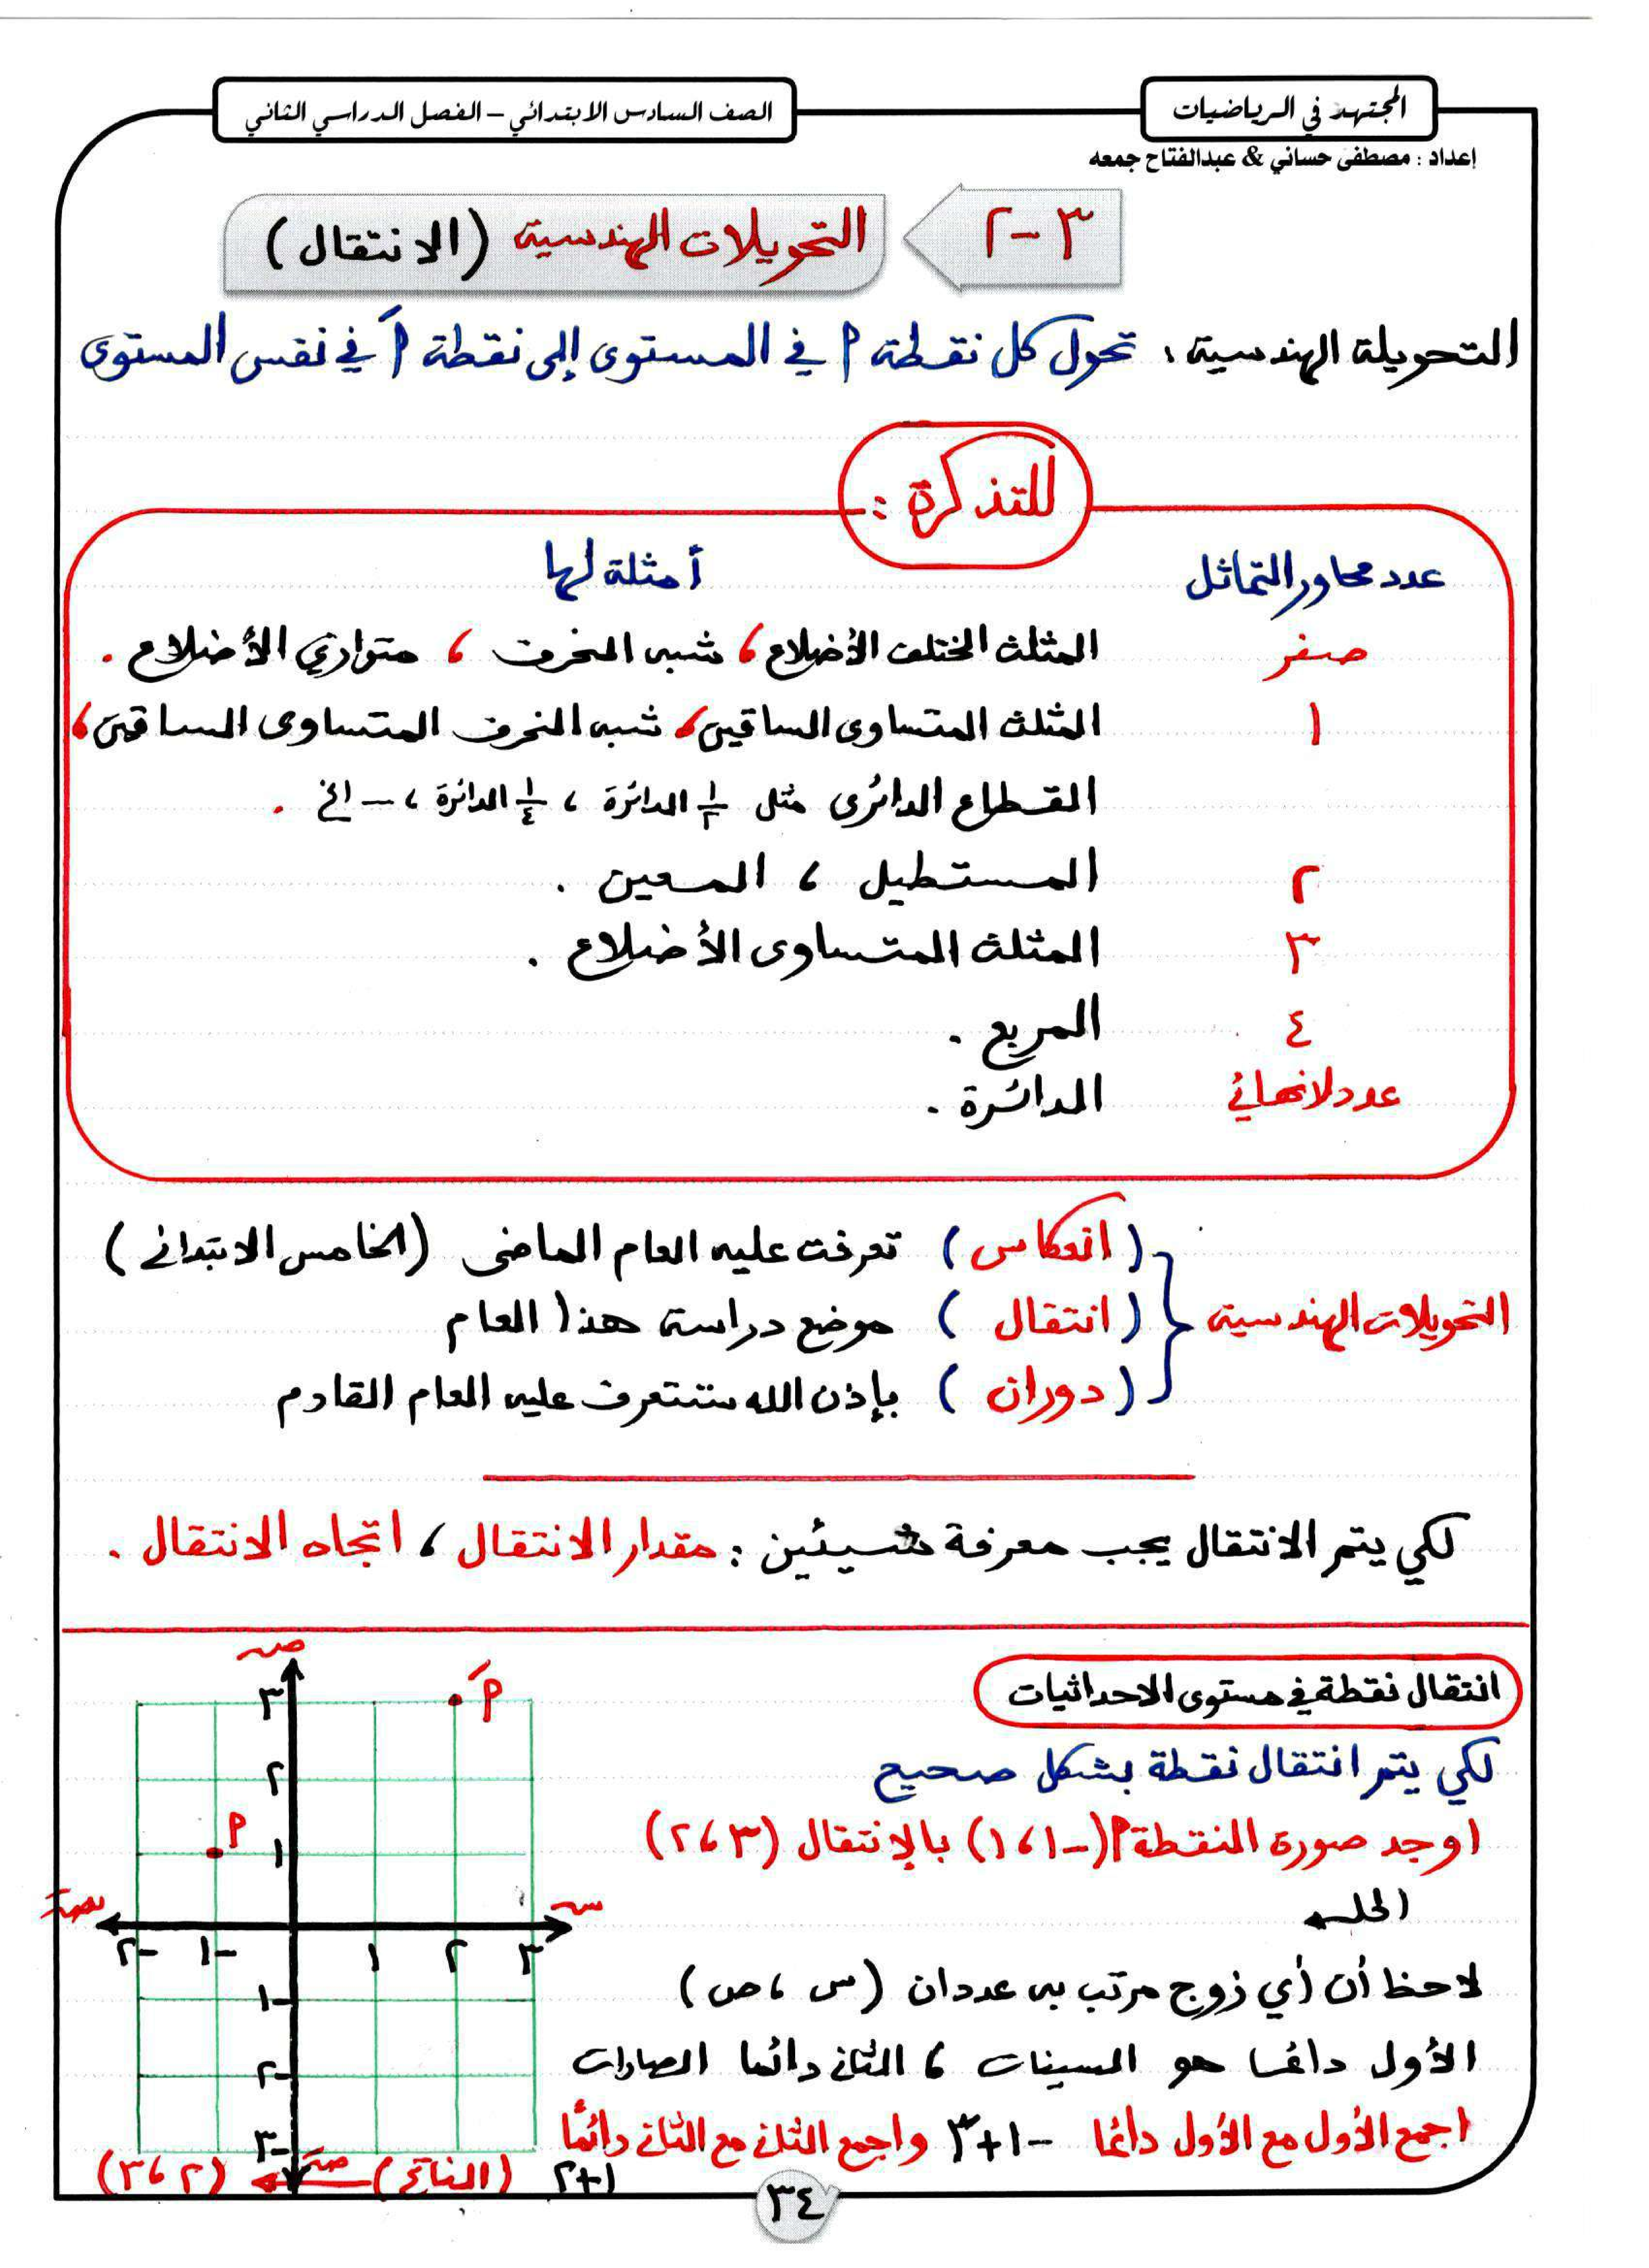 المجتهد في الرياضيات
الصف السادس الابتدائي – الفصل الدراسي الثاني
إعداد : مصطفى حساني & عبدالفتاح جمعه
٣-٢ التحويلات الهندسية (الانتقال)
التحويلة الهندسية : تحول كل نقطة م في المستوى إلى نقطة مَ في نفس المستوى
للتذكرة :
عدد محاور التماثل أمثلة لها
صفر المثلث المختلف الأضلاع ، شبه المنحرف ، متوازي الأضلاع .
١ المثلث المتساوى الساقين ، شبه المنحرف المتساوى الساقين ،
القطاع الدائرى مثل ١/٢ الدائرة ، ١/٤ الدائرة ، – الخ .
٢ المستطيل ، المعين .
٣ المثلث المتساوى الأضلاع .
٤ المربع .
عدد لانهائي الدائرة .
(انعكاس) تعرفت عليه العام الماضى (الخامس الابتدائى)
التحويلات الهندسية (انتقال) موضع دراسة هذا العام
(دوران) بإذن الله ستتعرف عليه العام القادم
لكي يتم الانتقال يجب معرفة شيئين : مقدار الانتقال ، اتجاه الانتقال .
انتقال نقطة في مستوى الاحداثيات
لكي يتم انتقال نقطة بشكل صحيح
اوجد صورة النقطة م(-١ ، ١) بالإنتقال (٣ ، ٢)
الحل
لاحظ أن أي زوج مرتب به عددان (س ، ص)
الأول دائما هو السينات ، الثانى دائما الصادات
اجمع الأول مع الأول دائما -١+٣ واجمع الثانى مع الثانى دائمًا
١+٢ (الناتج) (٢ ، ٣)
ص
٣ مَ
٢
م ١
س
-٢ -١ ١ ٢ ٣
-١
-٢
-٣
٣٤